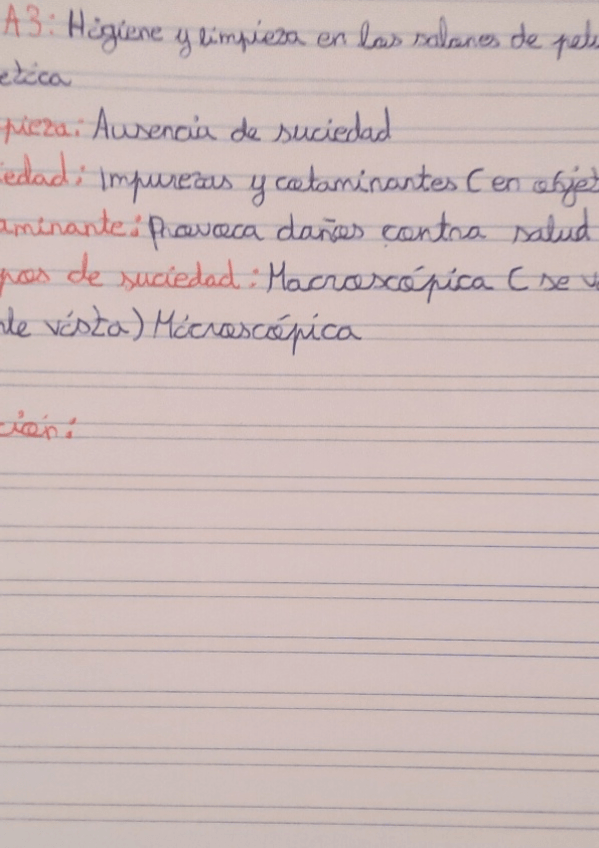 A3: Higiene y limpieza en los salones de pelu
etica
pieza: Ausencia de suciedad
iedad: Impurezas y cotaminantes (en objet
aminante: Provoca daños contra salud
pos de suciedad: Macroscópica (se v
de vista) Microscópica
ción: